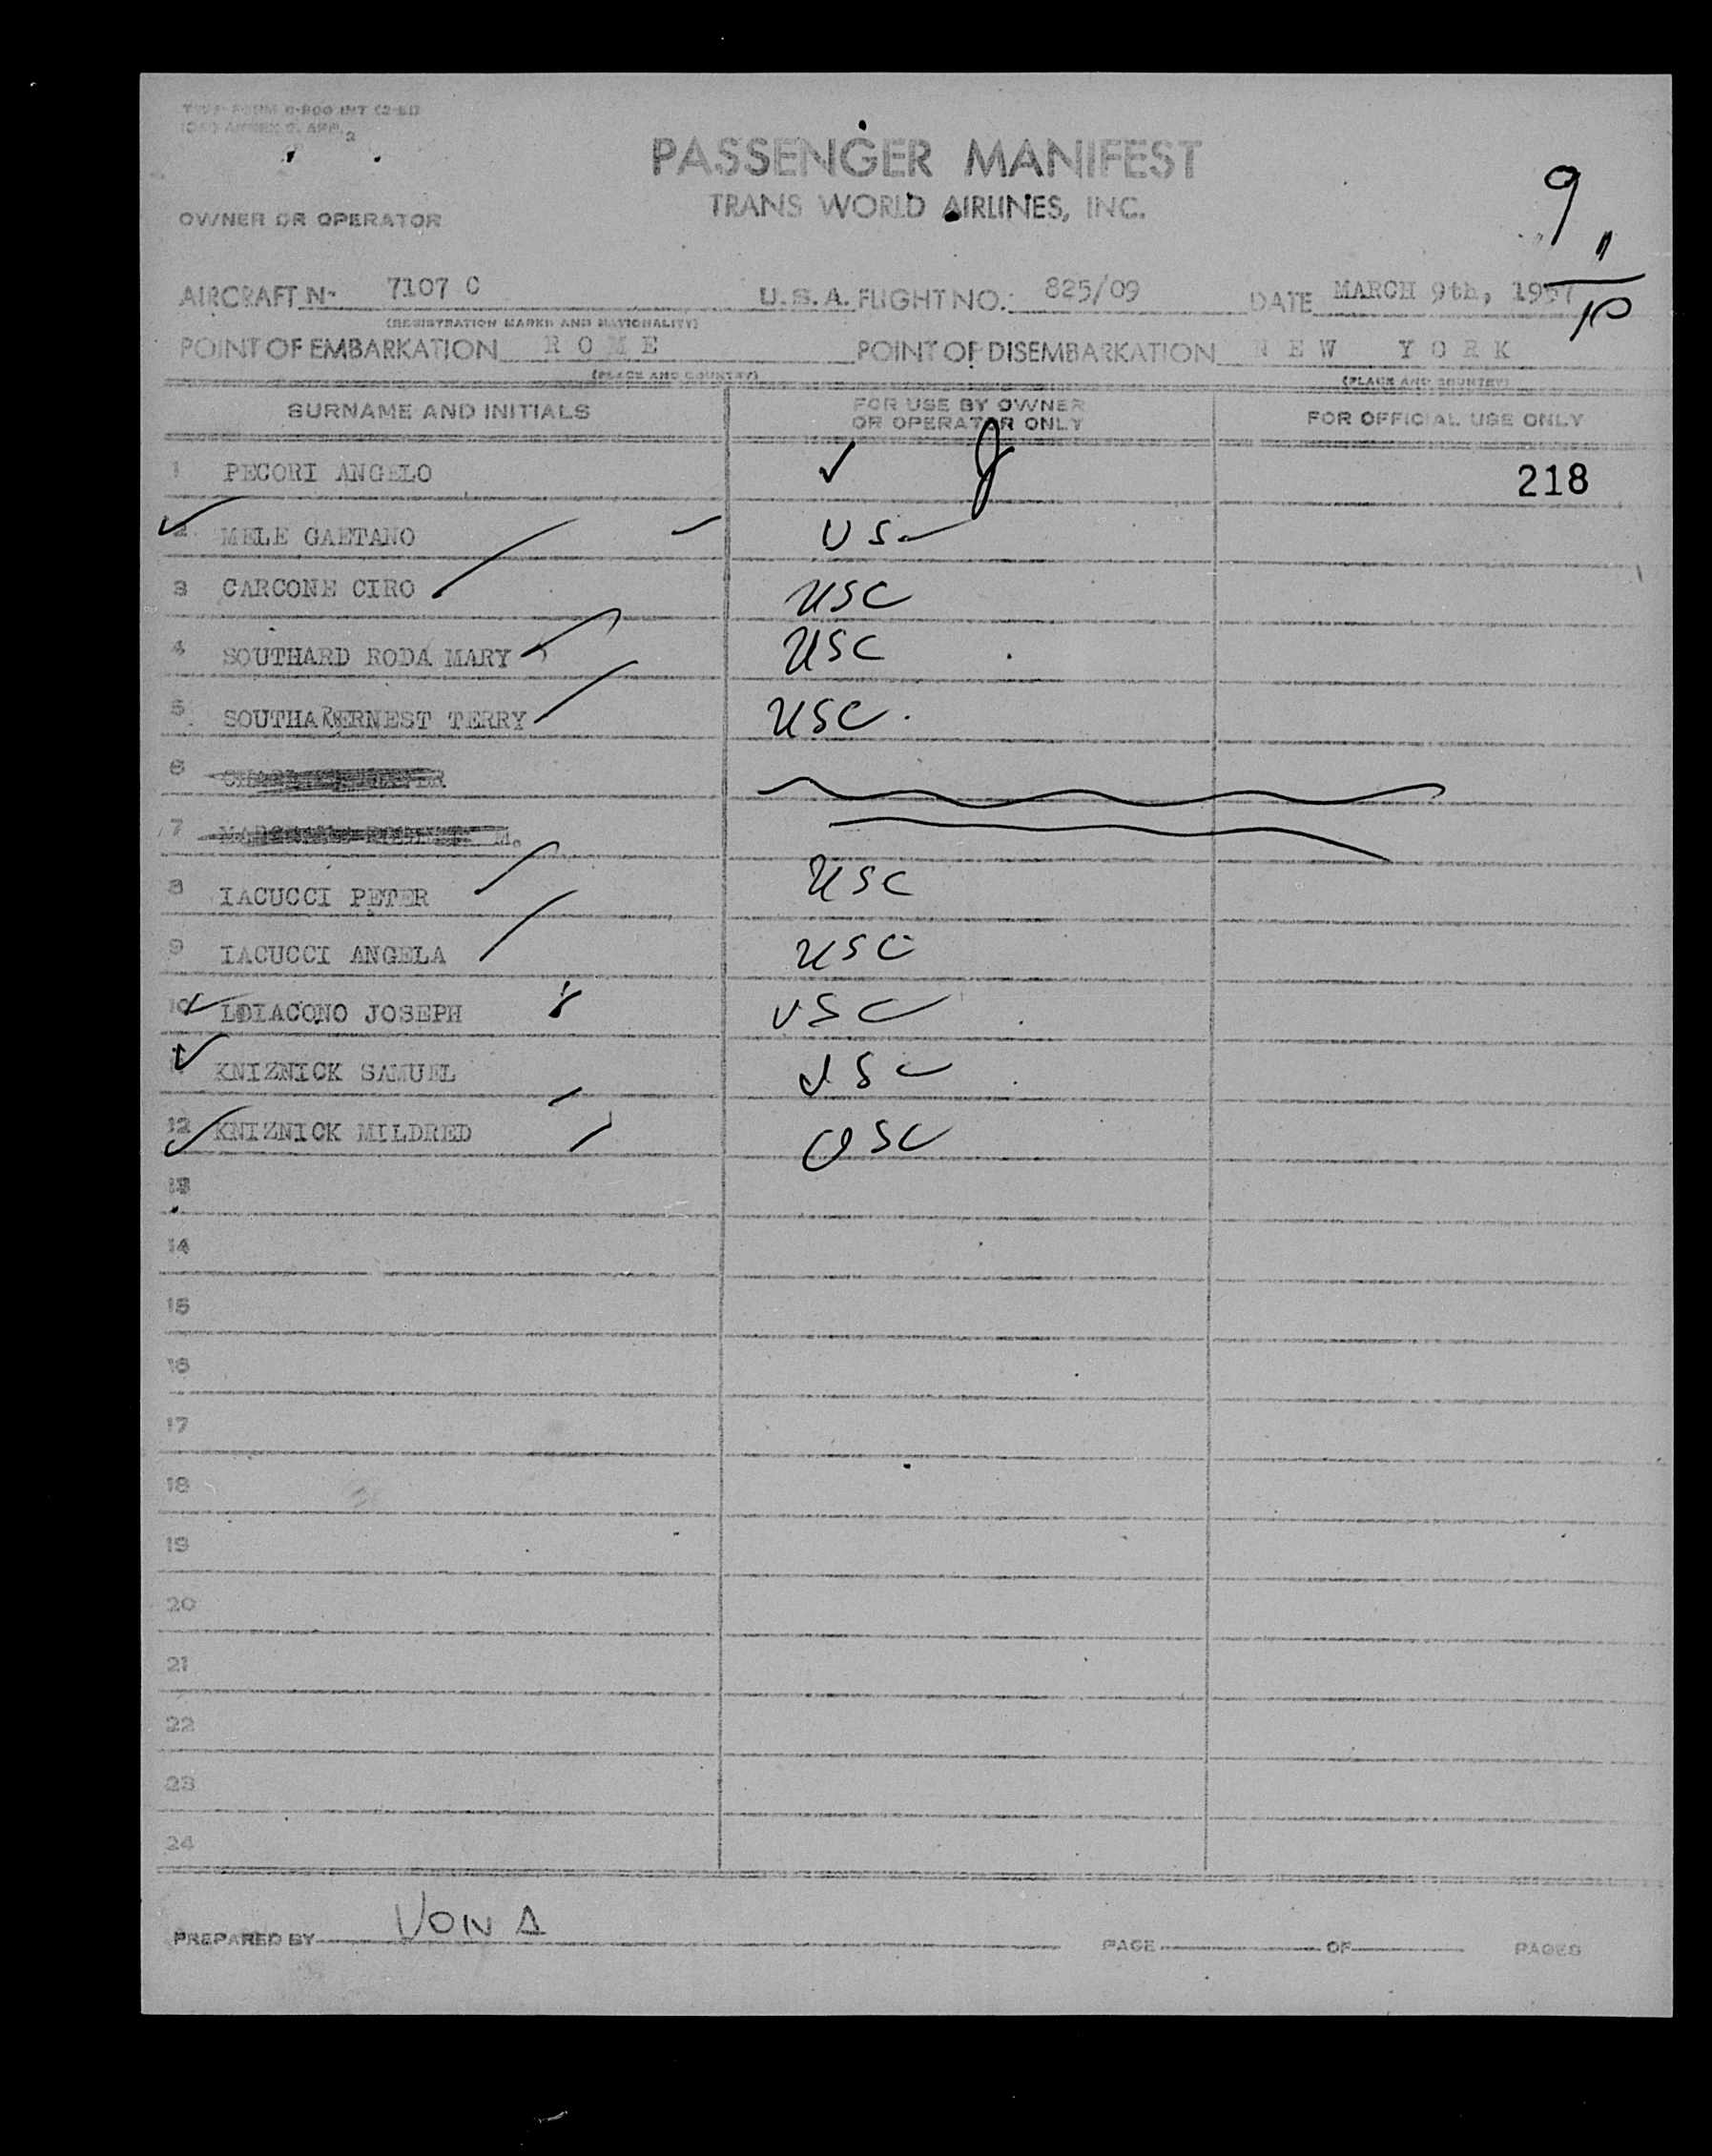 PASSENGER MANIFEST
TRANS WORLD AIRLINES, INC.
9
11
10
OWNER OR OPERATOR
AIRCRAFT No 7107 C U.S.A. FLIGHT NO. 825/09 DATE MARCH 9th, 1957
(REGISTRATION MARKS AND NATIONALITY)
POINT OF EMBARKATION ROME POINT OF DISEMBARKATION NEW YORK
(PLACE AND COUNTRY) (PLACE AND COUNTRY)
SURNAME AND INITIALS FOR USE BY OWNER OR OPERATOR ONLY FOR OFFICIAL USE ONLY
1 PECORI ANGELO ✓ 218
2 MELE GAETANO US
3 CARCONE CIRO USC
4 SOUTHARD RODA MARY USC
5 SOUTHARERNEST TERRY USC
6
7 M.
8 IACUCCI PETER USC
9 IACUCCI ANGELA USC
10 LOIACONO JOSEPH USC
11 KNIZNICK SAMUEL USC
12 KNIZNICK MILDRED USC
13
14
15
16
17
18
19
20
21
22
23
24
PREPARED BY VONA PAGE OF PAGES